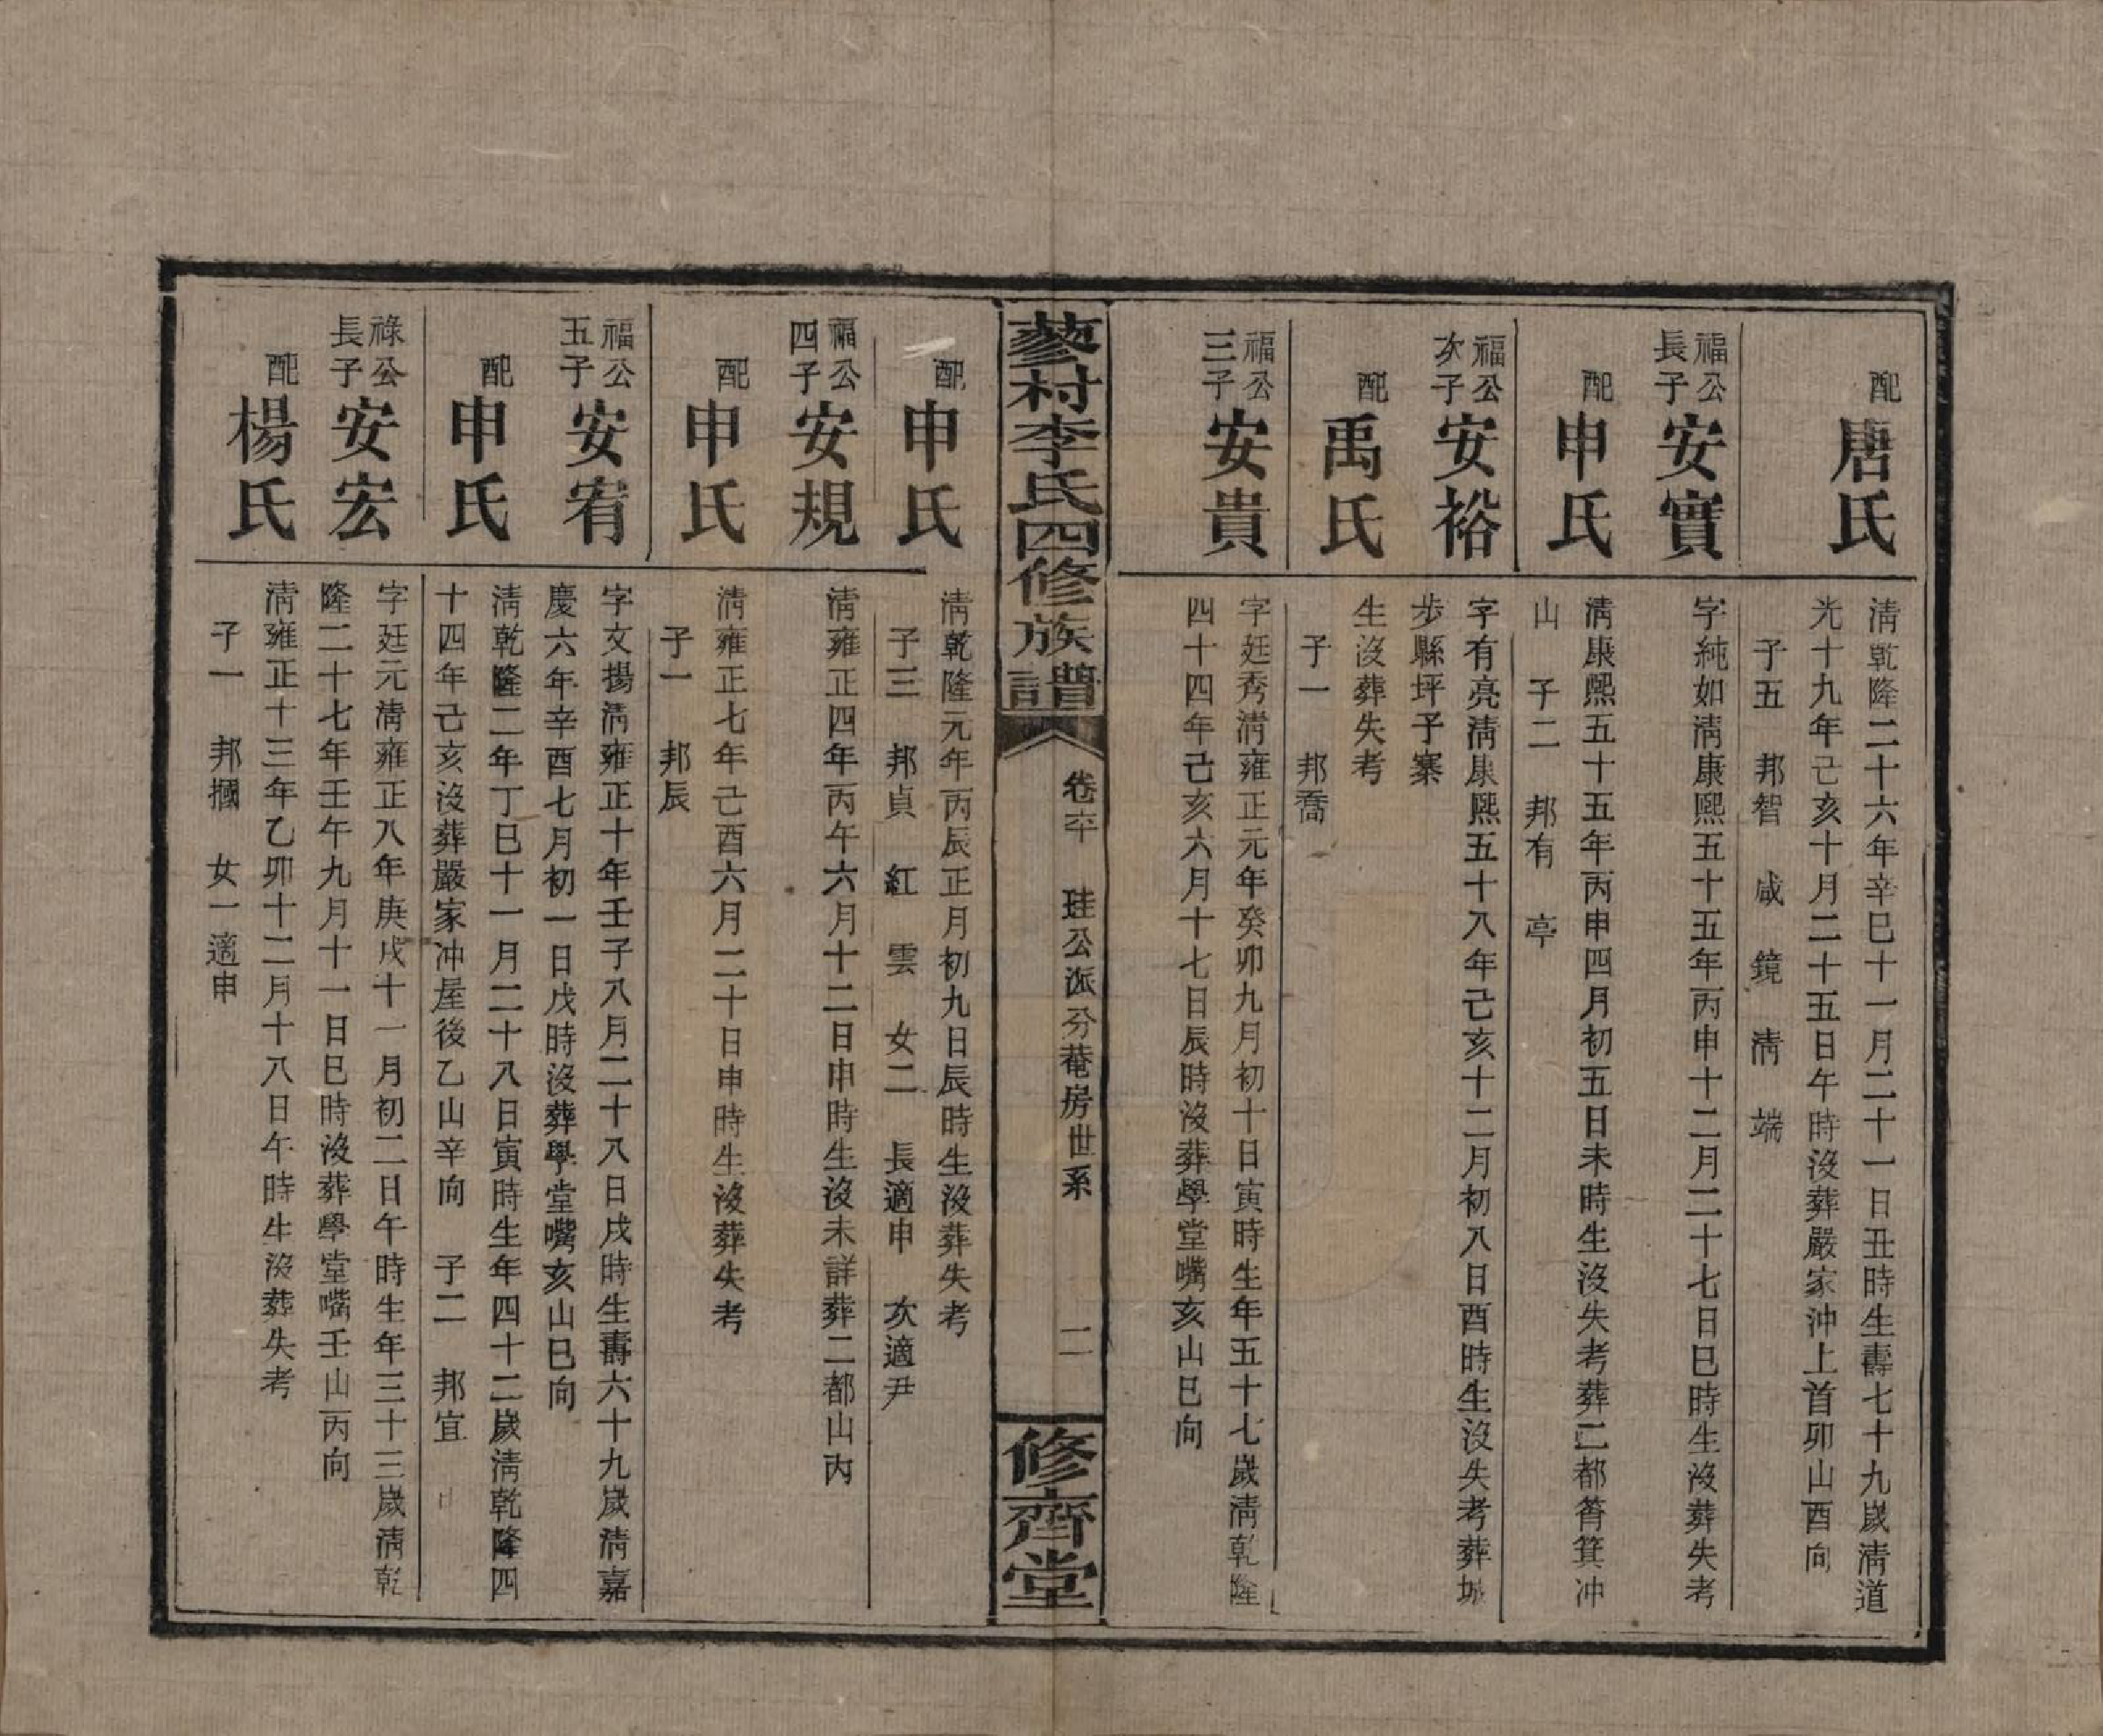 配唐氏
清乾隆二十六年辛巳十一月二十一日丑時生壽七十九歲清道
光十九年己亥十月二十五日午時沒葬嚴家沖上首卯山酉向
子五 邦智 咸 鏡 清 端
福公長子安實
字純如清康熙五十五年丙申十二月二十七日巳時生沒葬失考
配申氏
清康熙五十五年丙申四月初五日未時生沒失考葬二都筲箕冲
山 子二 邦有 亭
福公次子安裕
字有亮清康熙五十八年己亥十二月初八日酉時生沒失考葬城
步縣坪子寨
配禹氏
生沒葬失考
子一 邦喬
福公三子安貴
字廷秀清雍正元年癸卯九月初十日寅時生年五十七歲清乾隆
四十四年己亥六月十七日辰時沒葬學堂嘴亥山巳向
蓼村李氏四修族譜
卷 珪公派芬菴房世系 二
修齊堂
配申氏
清乾隆元年丙辰正月初九日辰時生沒葬失考
子三 邦貞 紅 雲 女二 長適申 次適尹
福公四子安規
清雍正四年丙午六月十二日申時生沒未詳葬二都山內
配申氏
清雍正七年己酉六月二十日申時生沒葬失考
子一 邦辰
福公五子安宥
字文揚清雍正十年壬子八月二十八日戌時生壽六十九歲清嘉
慶六年辛酉七月初一日戌時沒葬學堂嘴亥山巳向
配申氏
清乾隆二年丁巳十一月二十八日寅時生年四十二歲清乾隆四
十四年己亥沒葬嚴家冲屋後乙山辛向 子二 邦宜
祿公長子安宏
字廷元清雍正八年庚戌十一月初二日午時生年三十三歲清乾
隆二十七年壬午九月十一日巳時沒葬學堂嘴壬山丙向
配楊氏
清雍正十三年乙卯十二月十八日午時生沒葬失考
子一 邦摑 女一適申